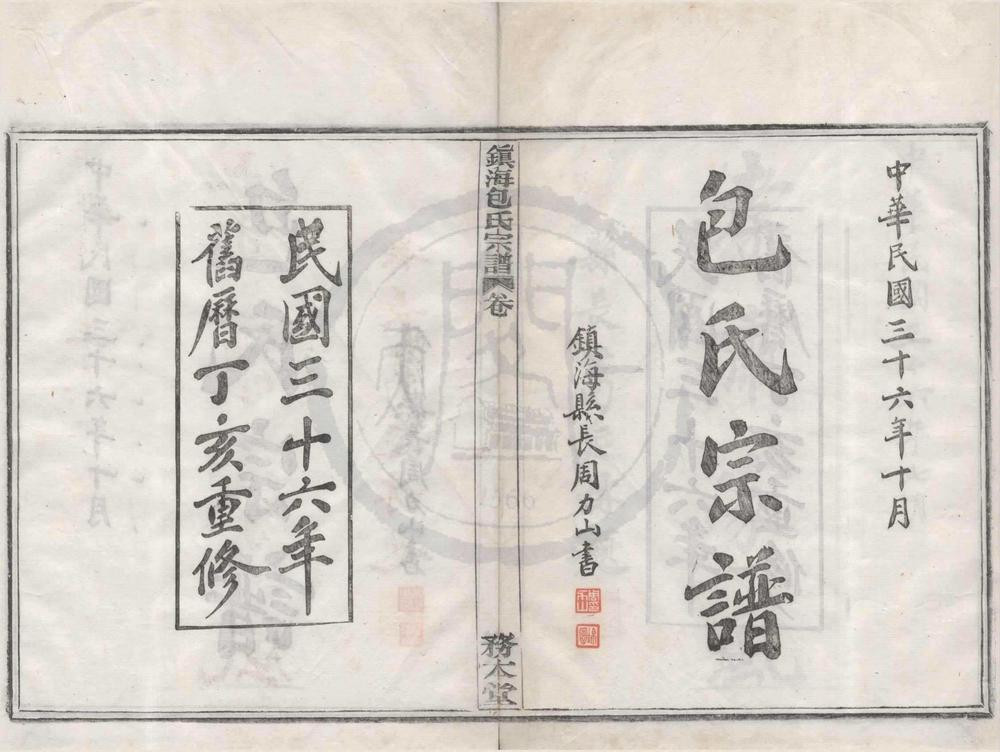 中華民國三十六年十月
包氏宗譜
鎮海縣長周力山書
鎮海包氏宗譜
卷
務本堂
民國三十六年
舊曆丁亥重修